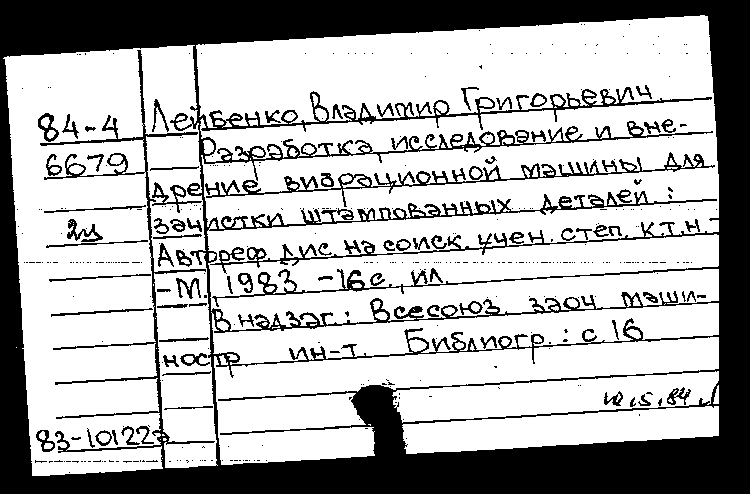 84-4 Лейбенко, Владимир Григорьевич.
6679 Разработка, исследование и вне-
дрение вибрационной машины для
2ц зачистки штампованных деталей :
Автореф. дис. на соиск. учен. степ. к.т.н. -
- М., 1983. - 16 с., ил.
В надзаг.: Всесоюз. заоч. маши-
ностр. ин-т. Библиогр.: с. 16
12.5.84
83-10122э